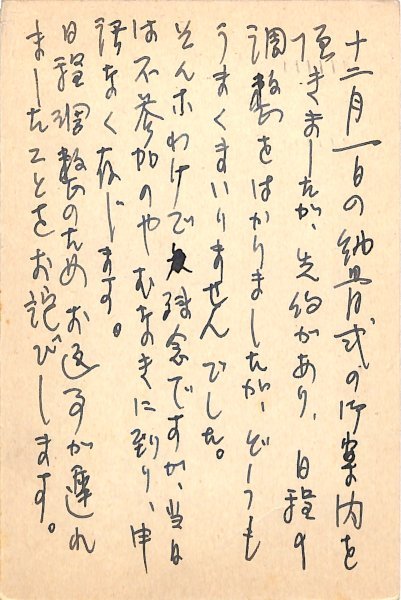 十二月一日の納骨式の御案内を
頂きましたが、先約があり、日程の
調整をはかりましたが、どうも
うまくまいりませんでした。
そんなわけで残念ですが、当日
は不参加のやむなきに到り、申
訳なく存じます。
日程調整のためお返事が遅れ
ましたことをお詫びします。